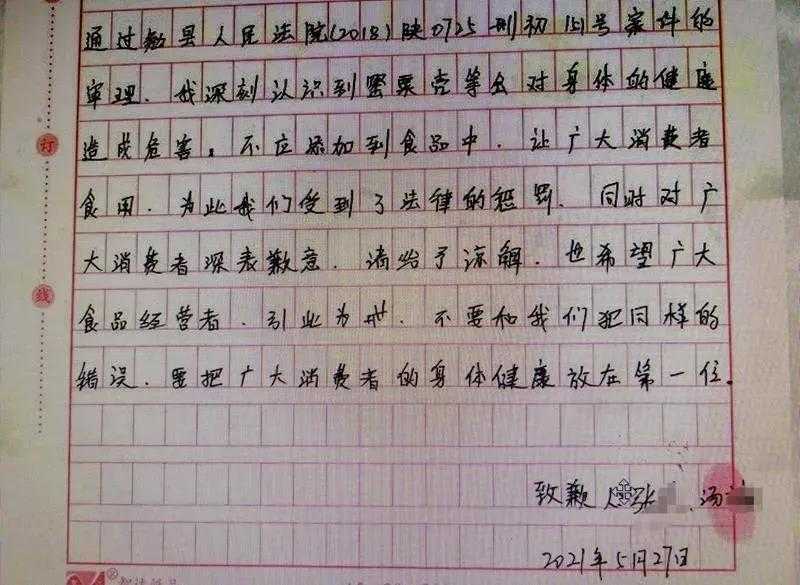 通过勉县人民法院(2018)陕0725刑初151号案件的
审理.我深刻认识到罂粟壳等会对身体的健康
造成危害,不应添加到食品中.让广大消费者
食用.为此我们受到了法律的惩罚.同时对广
大消费者深表歉意.请给予谅解.也希望广大
食品经营者.引此为戒.不要和我们犯同样的
错误.要把广大消费者的身体健康放在第一位。
致歉人张 、汤
2021年5月27日
订
线